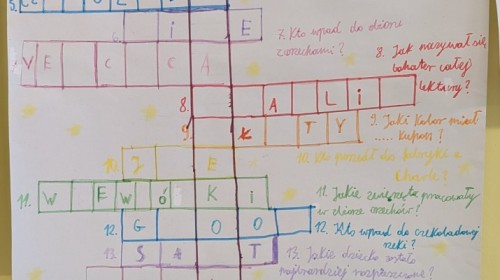 5.
6. I E
7. Kto wpadł do zbioru
z orzechami?
VE C C A
8. Jak nazywał się
bohater całej
lektury?
8. A L I
9. Jaki kolor miał
..... kupon?
9. Ł T Y
10. J E
10. Kto poszedł do fabryki z
11. W E W Ó K I
11. Jakie zwierzęta pracowały
w zbiorze orzechów?
12. G O O
12. Kto wpadł do czekoladowej
rzeki?
13. S A T
13. Jakie dziecko zostało
najbardziej rozpieszczone?